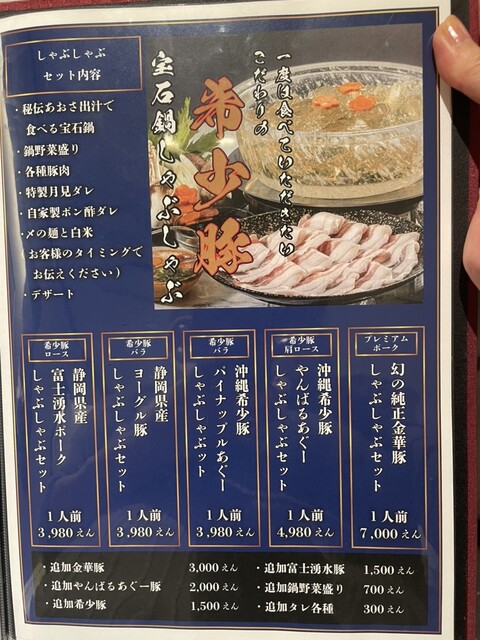 しゃぶしゃぶ
セット内容
・秘伝あおさ出汁で
食べる宝石鍋
・鍋野菜盛り
・各種豚肉
・特製月見ダレ
・自家製ポン酢ダレ
・〆の麺と白米
(お客様のタイミングで
お伝えください)
・デザート
一度は食べていただきたい
こだわりの
希少豚
宝石鍋しゃぶしゃぶ
希少豚
ロース
静岡県産
富士湧水ポーク
しゃぶしゃぶセット
1人前
3,980えん
希少豚
バラ
静岡県産
ヨーグル豚
しゃぶしゃぶセット
1人前
3,980えん
希少豚
バラ
沖縄希少豚
パイナップルあぐー
しゃぶしゃぶセット
1人前
3,980えん
希少豚
肩ロース
沖縄希少豚
やんばるあぐー
しゃぶしゃぶセット
1人前
4,980えん
プレミアム
ポーク
幻の純正金華豚
しゃぶしゃぶセット
1人前
7,000えん
・追加金華豚 3,000えん
・追加やんばるあぐー豚 2,000えん
・追加希少豚 1,500えん
・追加富士湧水豚 1,500えん
・追加鍋野菜盛り 700えん
・追加タレ各種 300えん